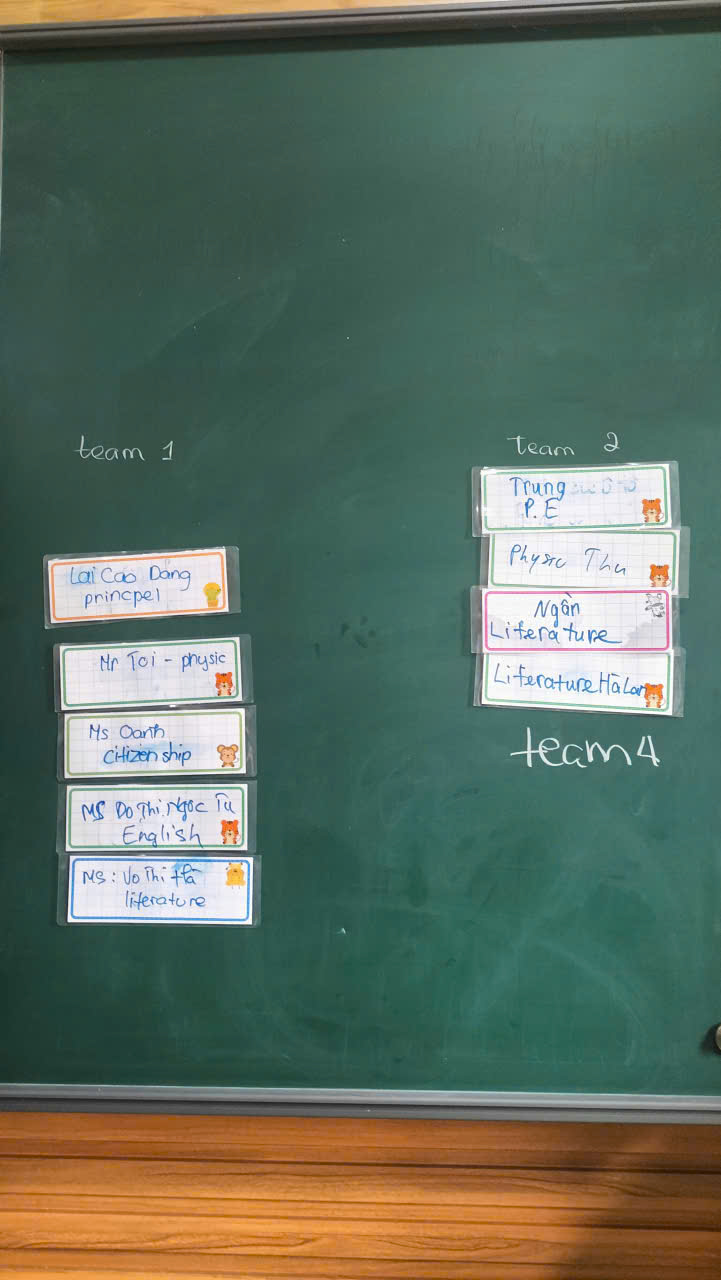 team 1
Lai Cao Dang
princpel
Mr Toi - physic
Ms Oanh
Citizenship
MS Do Thi Ngoc Tu
English
MS: Vo Thi Hà
literature
Team 2
Trung
P.E
Physic Thu
Ngân
Literature
Literature Hà Lan
team 4